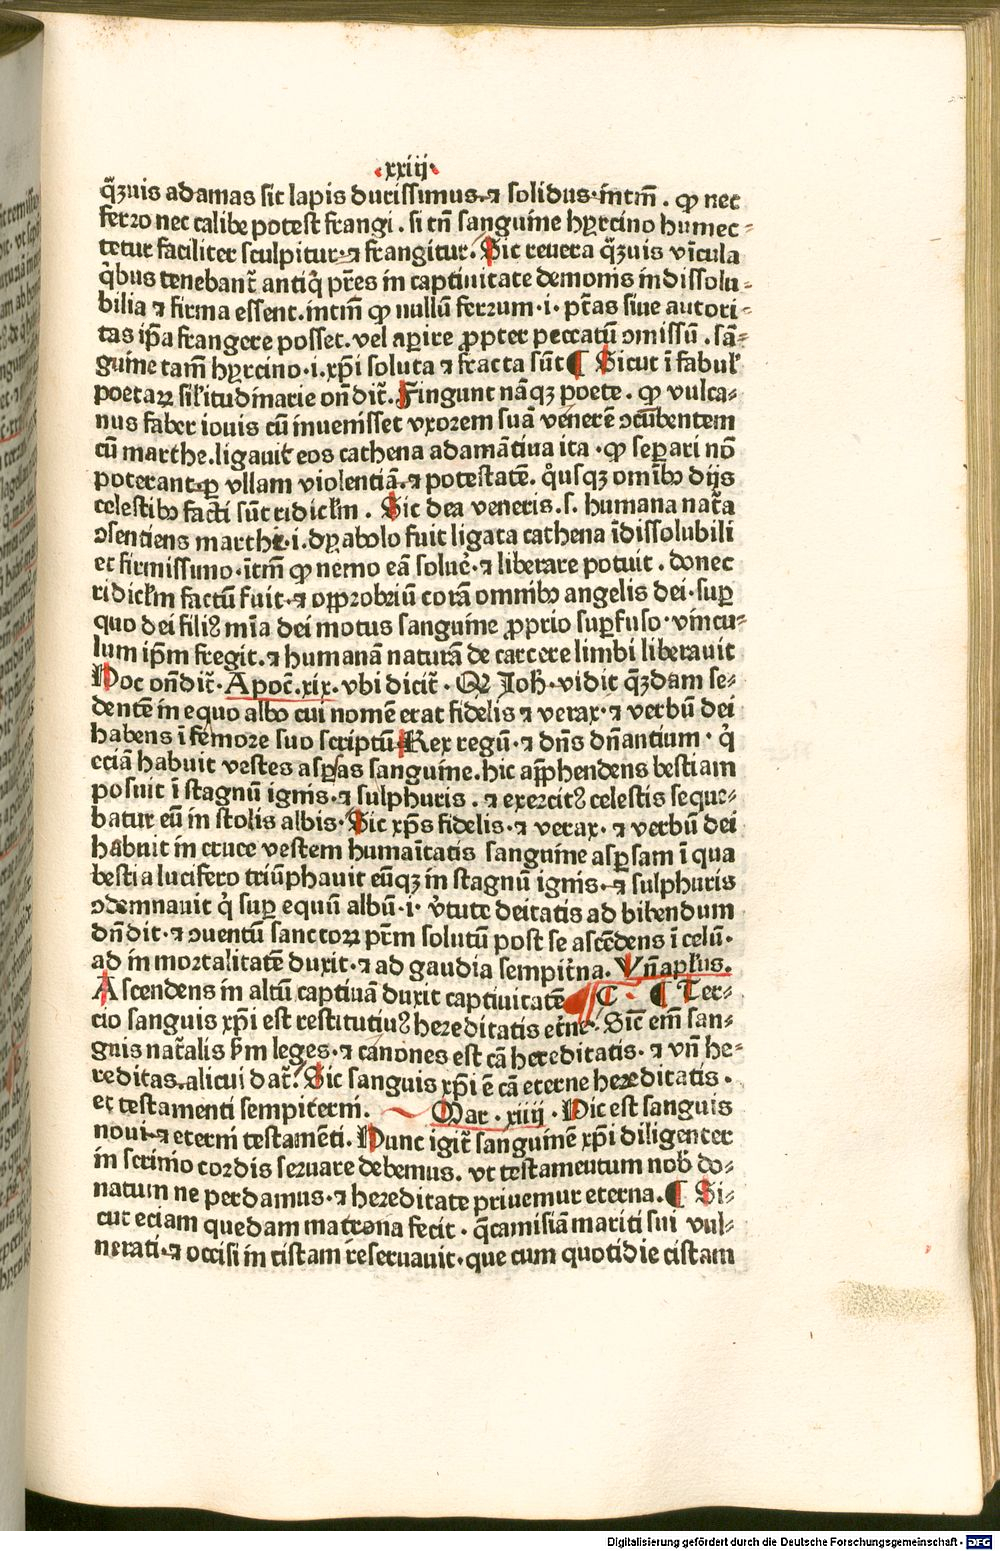 ·xxiij·
q̄ꝫuis adamas sit lapis durissimus·⁊ solidus·intm̄. ꝙ nec
ferro nec calibe potest frangi. si tn̄ sanguine hyrcino humec-
tetur faciliter sculpitur·⁊ frangitur. Sic reuera q̄ꝫuis vīcula
q̇bus tenebant᷑ antiq̇ pr̄es in captiuitate demonis indissolu-
bilia ⁊ firma essent. intm̄ ꝙ nullū ferrum·i·pt̄as siue autori-
tas ip̄a frangere posset. vel aꝑire ꝓpter peccatū ↄmissū. sā-
guine tam̄ hyrcino·i·xp̄i soluta ⁊ fracta sūt ¶ Sicut ī fabul̓
poetaꝝ sil̓itudinarie on̄dit᷑. Fingunt nāqꝫ poete. ꝙ vulca-
nus faber iouis cū inuenisset vxorem suā venerē ↄcūbentem
cū marthe. ligauit eos cathena adamātiua ita·ꝙ seꝑari nō
poterant·ꝑ vllam violentiā.⁊ potestatē. q̊usqꝫ omībꝰ dijs
celestibꝰ facti sūt ridicl̓m. Sic dea veneris. s. humana nat᷑a
ↄsentiens marthe·i·dyabolo fuit ligata cathena īdissolubili
et firmissimo·ītm̄ ꝙ nemo eā solue᷑·⁊ liberare potuit. donec
ridicl̓m factū fuit·⁊ oꝓbriū corā omnibꝰ angelis dei·suꝑ
quo dei filiꝰ mīa dei motus sanguine ꝓprio suꝑfuso·vincu-
lum ip̄m fregit.⁊ humanā naturā de carcere limbi liberauit
Hoc on̄dit᷑. Apoc̄.xix. vbi dicit᷑. Q Joh̄·vidit q̄ꝫdam se-
dentē in equo albo cui nomē erat fidelis ⁊ verax·⁊ verbū dei
habens ī femore suo scriptū Rex regū·⁊ dn̄s dn̄antium·q̇
eciā habuit vestes asꝑsas sanguine. hic apꝓhendens bestiam
posuit ī stagnū ignis·⁊ sulphuris. ⁊ exercitꝰ celestis seque-
batur eū in stolis albis. Sic xp̄s fidelis·⁊ verax·⁊ verbū dei
habuit in cruce vestem humaītatis sanguine asꝑsam ī qua
bestia lucifero triūphauit eūqꝫ in stagnū ignis·⁊ sulphuris
ↄdemnauit q̇ suꝑ equū albū·i·v̓tute deitatis ad bibendum
dn̄dit·⁊ ↄuentū sanctoꝝ pr̄m solutū post se ascēdens ī celū·
ad in mortalitatē duxit·⁊ ad gaudia sempit᷑na. Vn̄ apl̓us.
Ascendens in altū captiuā duxit captiuitatē ¶ Ter-
cio sanguis xp̄i est restitutiuꝰ hereditatis et᷑ne·Sic̄ em̄ san-
guis nat᷑alis scd̄m leges·⁊ canones est cā hereditatis·⁊ vn̄ he-
reditas. alicui dat᷑. Sic sanguis xp̄i ē cā eterne hereditatis·
et testamenti sempiterni. Mar·xiiij·Hic est sanguis
noui·⁊ eterni testamēti. Hunc igit᷑ sanguinē xp̄i diligenter
in scrinio cordis seruare debemus. vt testamentum nob̓ do-
natum ne perdamus·⁊ hereditate priuemur eterna. ¶ Si-
cut eciam quedam matrona fecit·q̄ camisiā mariti sui vul-
nerati·⁊ occisi in cistam reseruauit·que cum quotidie cistam
Digitalisierung gefördert durch die Deutsche Forschungsgemeinschaft - DFG